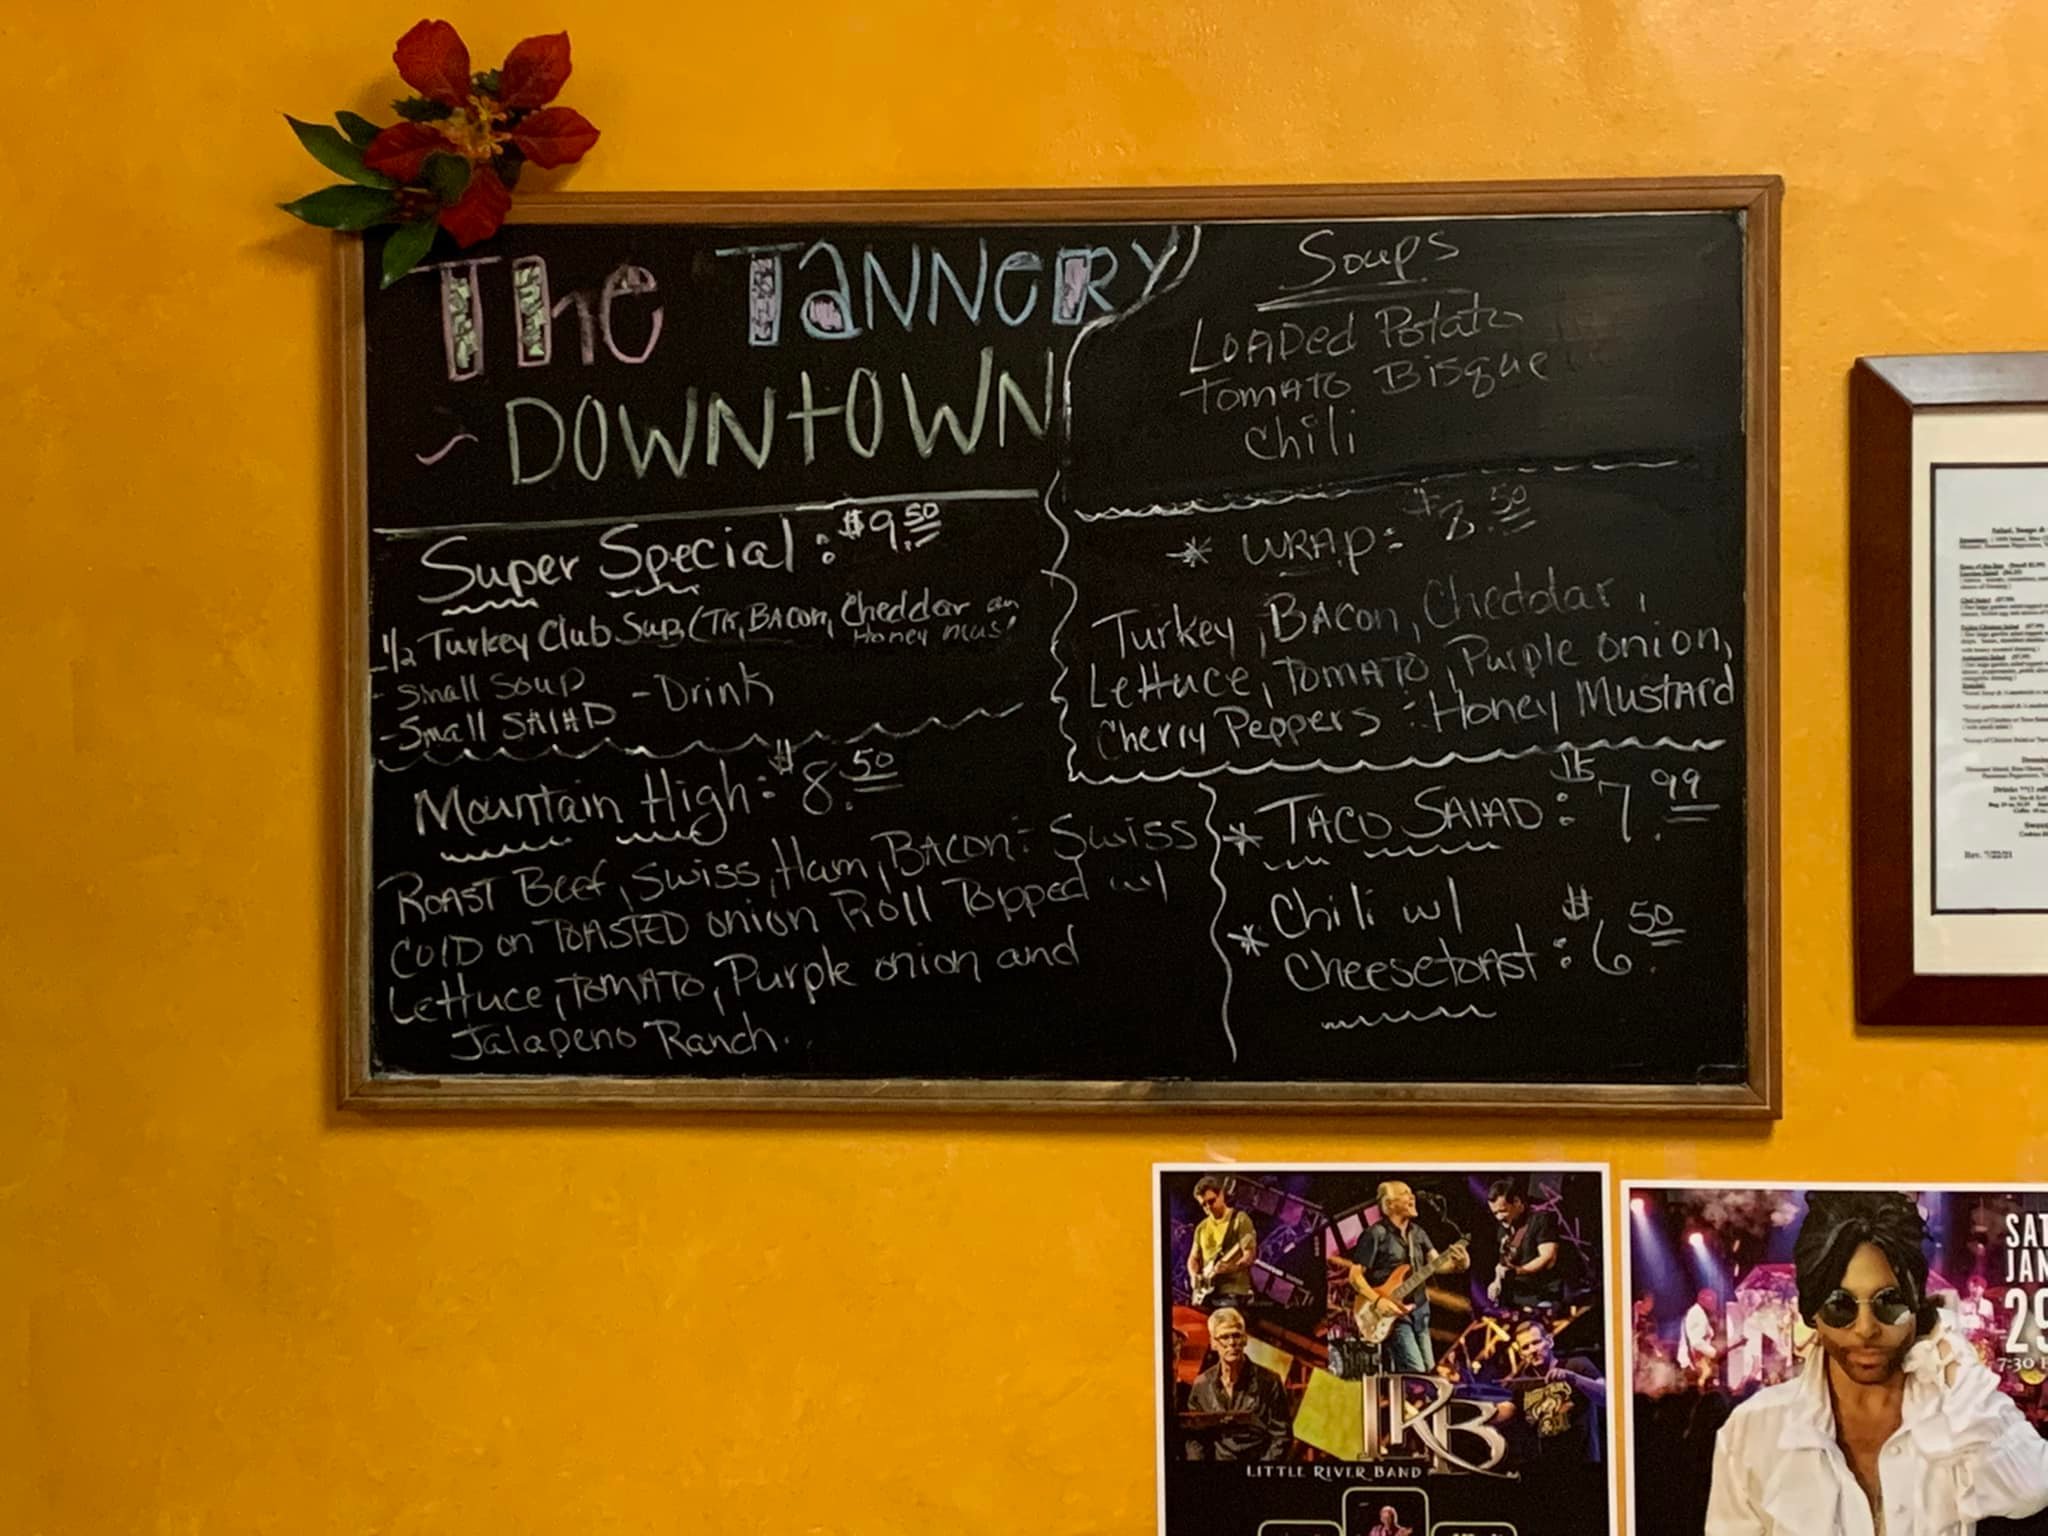 The Tannery
~ Downtown
Super Special: $9.50
1/2 Turkey Club Sub, (TK, Bacon, Cheddar an
Honey Mus!
- Small Soup
- Small Salad - Drink
Mountain High: $8.50
Roast Beef, Swiss, Ham, Bacon: Swiss
Cold on Toasted onion Roll Topped w/
Lettuce, Tomato, Purple onion and
Jalapeno Ranch.
Soups
Loaded Potato
Tomato Bisque
Chili
* Wrap: $8.50
Turkey, Bacon, Cheddar,
Lettuce, Tomato, Purple onion,
Cherry Peppers: Honey Mustard
* Taco Salad: $7.99
* Chili w/
Cheesetoast: $6.50
Rev. 7/22/21
LRB
LITTLE RIVER BAND
SAT
JAN
29
7:30